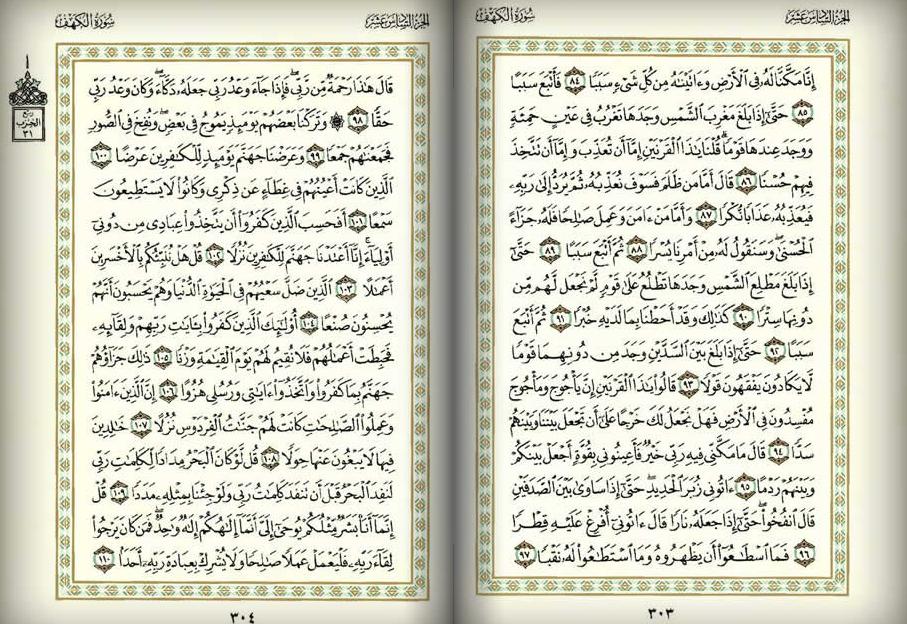 الجُزْءُ السَّادِسَ عَشَرَ سُورَةُ الكَهْفِ
إِنَّا مَكَّنَّا لَهُۥ فِى ٱلْأَرْضِ وَءَاتَيْنَٰهُ مِن كُلِّ شَىْءٍ سَبَبًا ٨٤ فَأَتْبَعَ سَبَبًا
٨٥ حَتَّىٰٓ إِذَا بَلَغَ مَغْرِبَ ٱلشَّمْسِ وَجَدَهَا تَغْرُبُ فِى عَيْنٍ حَمِئَةٍ
وَوَجَدَ عِندَهَا قَوْمًا ۗ قُلْنَا يَٰذَا ٱلْقَرْنَيْنِ إِمَّآ أَن تُعَذِّبَ وَإِمَّآ أَن تَتَّخِذَ
فِيهِمْ حُسْنًا ٨٦ قَالَ أَمَّا مَن ظَلَمَ فَسَوْفَ نُعَذِّبُهُۥ ثُمَّ يُرَدُّ إِلَىٰ رَبِّهِۦ
فَيُعَذِّبُهُۥ عَذَابًا نُّكْرًا ٨٧ وَأَمَّا مَنْ ءَامَنَ وَعَمِلَ صَٰلِحًا فَلَهُۥ جَزَآءً
ٱلْحُسْنَىٰ ۖ وَسَنَقُولُ لَهُۥ مِنْ أَمْرِنَا يُسْرًا ٨٨ ثُمَّ أَتْبَعَ سَبَبًا ٨٩ حَتَّىٰٓ
إِذَا بَلَغَ مَطْلِعَ ٱلشَّمْسِ وَجَدَهَا تَطْلُعُ عَلَىٰ قَوْمٍ لَّمْ نَجْعَل لَّهُم مِّن
دُونِهَا سِتْرًا ٩٠ كَذَٰلِكَ وَقَدْ أَحَطْنَا بِمَا لَدَيْهِ خُبْرًا ٩١ ثُمَّ أَتْبَعَ
سَبَبًا ٩٢ حَتَّىٰٓ إِذَا بَلَغَ بَيْنَ ٱلسَّدَّيْنِ وَجَدَ مِن دُونِهِمَا قَوْمًا
لَّا يَكَادُونَ يَفْقَهُونَ قَوْلًا ٩٣ قَالُوا۟ يَٰذَا ٱلْقَرْنَيْنِ إِنَّ يَأْجُوجَ وَمَأْجُوجَ
مُفْسِدُونَ فِى ٱلْأَرْضِ فَهَلْ نَجْعَلُ لَكَ خَرْجًا عَلَىٰٓ أَن تَجْعَلَ بَيْنَنَا وَبَيْنَهُمْ
سَدًّا ٩٤ قَالَ مَا مَكَّنِّى فِيهِ رَبِّى خَيْرٌ فَأَعِينُونِى بِقُوَّةٍ أَجْعَلْ بَيْنَكُمْ
وَبَيْنَهُمْ رَدْمًا ٩٥ ءَاتُونِى زُبَرَ ٱلْحَدِيدِ ۖ حَتَّىٰٓ إِذَا سَاوَىٰ بَيْنَ ٱلصَّدَفَيْنِ
قَالَ ٱنفُخُوا۟ ۖ حَتَّىٰٓ إِذَا جَعَلَهُۥ نَارًا قَالَ ءَاتُونِىٓ أُفْرِغْ عَلَيْهِ قِطْرًا
٩٦ فَمَا ٱسْطَٰعُوٓا۟ أَن يَظْهَرُوهُ وَمَا ٱسْتَطَٰعُوا۟ لَهُۥ نَقْبًا ٩٧
٣٠٣
الجُزْءُ السَّادِسَ عَشَرَ سُورَةُ الكَهْفِ
قَالَ هَٰذَا رَحْمَةٌ مِّن رَّبِّى ۖ فَإِذَا جَآءَ وَعْدُ رَبِّى جَعَلَهُۥ دَكَّآءَ ۖ وَكَانَ وَعْدُ رَبِّى
حَقًّا ٩٨ ۞ وَتَرَكْنَا بَعْضَهُمْ يَوْمَئِذٍ يَمُوجُ فِى بَعْضٍ ۖ وَنُفِخَ فِى ٱلصُّورِ
فَجَمَعْنَٰهُمْ جَمْعًا ٩٩ وَعَرَضْنَا جَهَنَّمَ يَوْمَئِذٍ لِّلْكَٰفِرِينَ عَرْضًا ١٠٠
ٱلَّذِينَ كَانَتْ أَعْيُنُهُمْ فِى غِطَآءٍ عَن ذِكْرِى وَكَانُوا۟ لَا يَسْتَطِيعُونَ
سَمْعًا ١٠١ أَفَحَسِبَ ٱلَّذِينَ كَفَرُوٓا۟ أَن يَتَّخِذُوا۟ عِبَادِى مِن دُونِىٓ
أَوْلِيَآءَ ۚ إِنَّآ أَعْتَدْنَا جَهَنَّمَ لِلْكَٰفِرِينَ نُزُلًا ١٠٢ قُلْ هَلْ نُنَبِّئُكُم بِٱلْأَخْسَرِينَ
أَعْمَٰلًا ١٠٣ ٱلَّذِينَ ضَلَّ سَعْيُهُمْ فِى ٱلْحَيَوٰةِ ٱلدُّنْيَا وَهُمْ يَحْسَبُونَ أَنَّهُمْ
يُحْسِنُونَ صُنْعًا ١٠٤ أُو۟لَٰٓئِكَ ٱلَّذِينَ كَفَرُوا۟ بِـَٔايَٰتِ رَبِّهِمْ وَلِقَآئِهِۦ
فَحَبِطَتْ أَعْمَٰلُهُمْ فَلَا نُقِيمُ لَهُمْ يَوْمَ ٱلْقِيَٰمَةِ وَزْنًا ١٠٥ ذَٰلِكَ جَزَآؤُهُمْ
جَهَنَّمُ بِمَا كَفَرُوا۟ وَٱتَّخَذُوٓا۟ ءَايَٰتِى وَرُسُلِى هُزُوًا ١٠٦ إِنَّ ٱلَّذِينَ ءَامَنُوا۟
وَعَمِلُوا۟ ٱلصَّٰلِحَٰتِ كَانَتْ لَهُمْ جَنَّٰتُ ٱلْفِرْدَوْسِ نُزُلًا ١٠٧ خَٰلِدِينَ
فِيهَا لَا يَبْغُونَ عَنْهَا حِوَلًا ١٠٨ قُل لَّوْ كَانَ ٱلْبَحْرُ مِدَادًا لِّكَلِمَٰتِ رَبِّى
لَنَفِدَ ٱلْبَحْرُ قَبْلَ أَن تَنفَدَ كَلِمَٰتُ رَبِّى وَلَوْ جِئْنَا بِمِثْلِهِۦ مَدَدًا ١٠٩ قُلْ
إِنَّمَآ أَنَا۠ بَشَرٌ مِّثْلُكُمْ يُوحَىٰٓ إِلَىَّ أَنَّمَآ إِلَٰهُكُمْ إِلَٰهٌ وَٰحِدٌ ۖ فَمَن كَانَ يَرْجُوا۟
لِقَآءَ رَبِّهِۦ فَلْيَعْمَلْ عَمَلًا صَٰلِحًا وَلَا يُشْرِكْ بِعِبَادَةِ رَبِّهِۦٓ أَحَدًۢا ١١٠
ربع
الحزب
٣١
٣٠٤